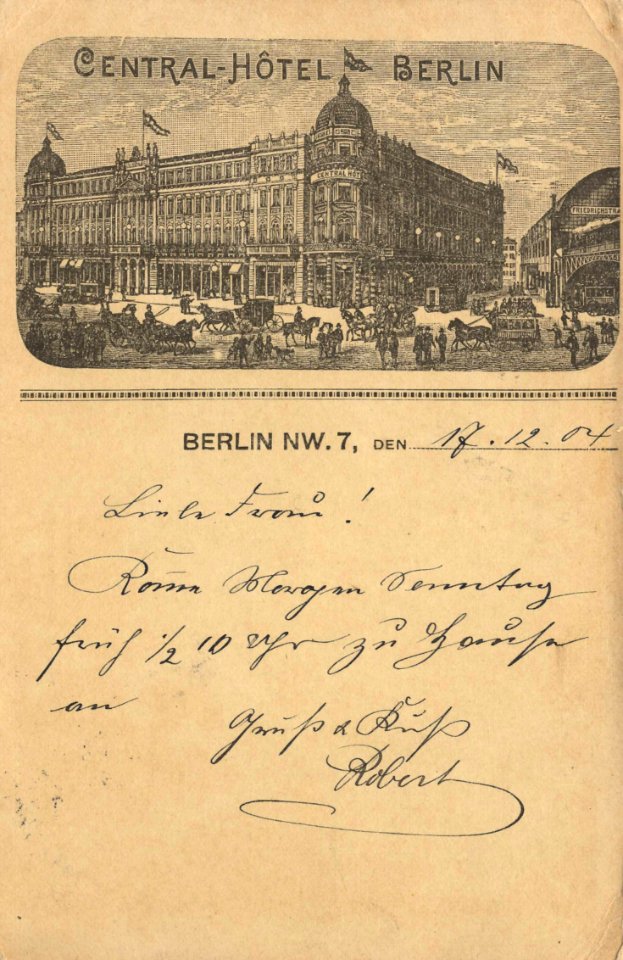 CENTRAL-HÔTEL BERLIN
CENTRAL HOTEL
FRIEDRICHSTRA
BERLIN NW. 7, DEN 17.12.04
Liebe Frau!
Komme Morgen Sonntag
früh ½ 10 Uhr zu Hause
an
Gruß & Kuß
Robert